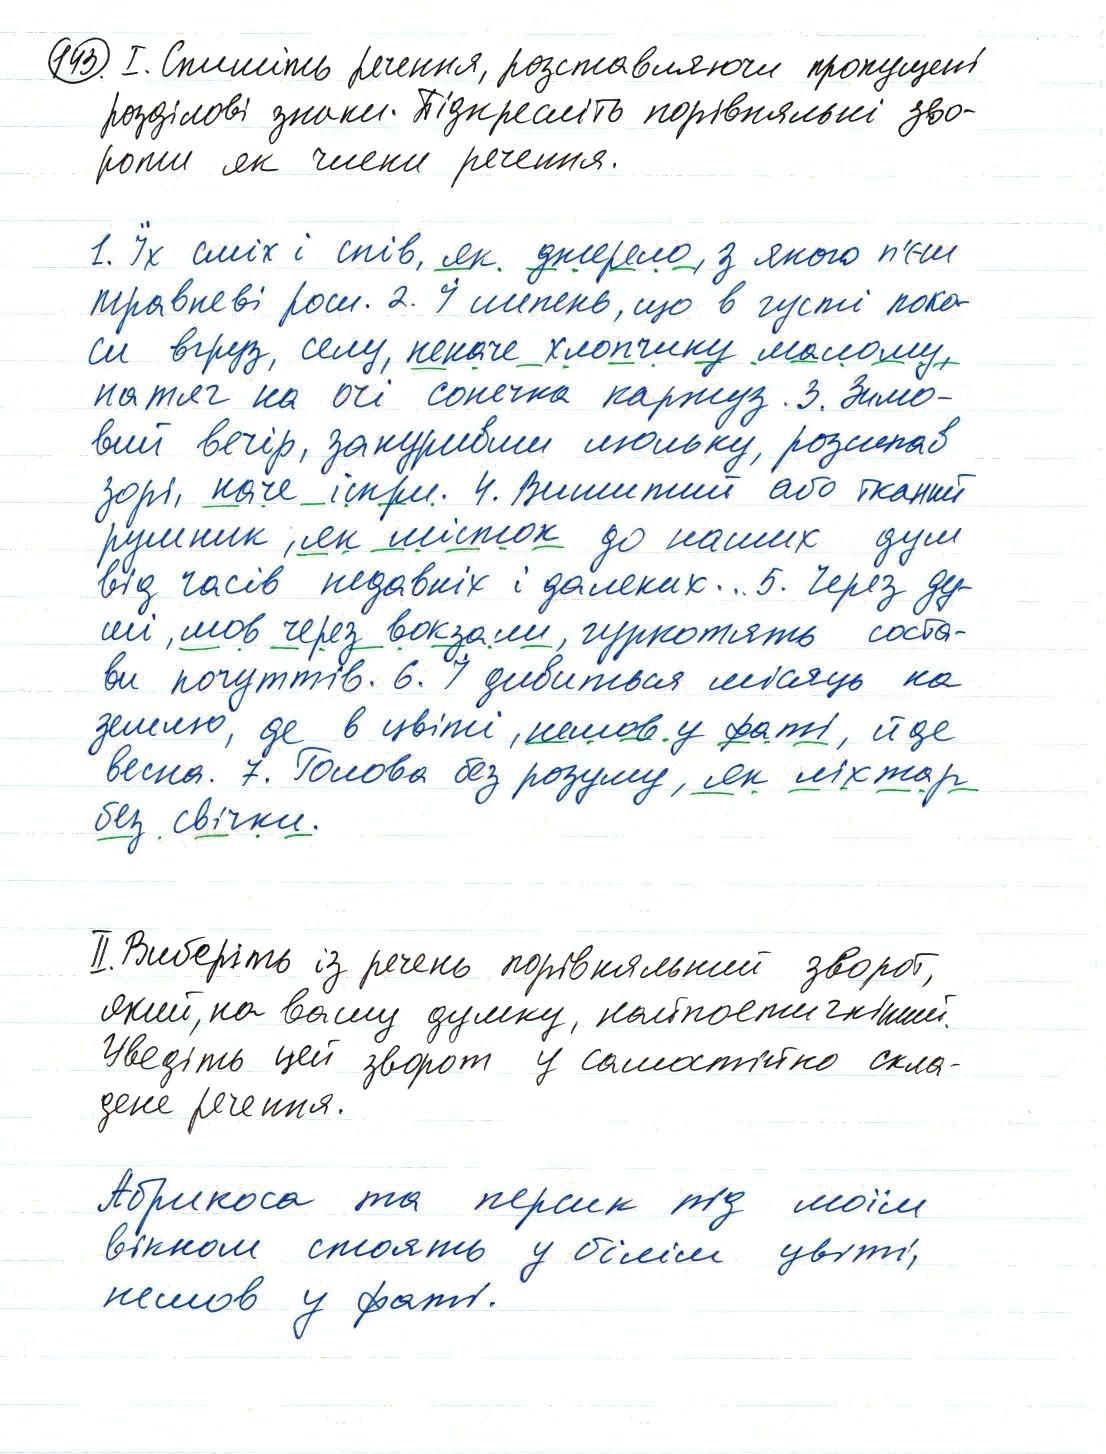 143. І. Спишіть речення, розставляючи пропущені
розділові знаки. Підкресліть порівняльні зво-
роти як члени речення.
1. Їх сміх і спів, як джерело, з якого п'єш
травневі роси. 2. Й липень, що в густі поко-
си вгруз, селу, неначе хлопчику малому,
натяг на очі сонечка картуз. 3. Зимо-
вий вечір, закуривши люльку, розсипав
зорі, наче іскри. 4. Вишитий або тканий
рушник, як місток до наших дум
від часів недавніх і далеких... 5. Через ду-
ші, мов через вокзали, гуркотять соста-
ви почуттів. 6. Й дивиться місяць на
землю, де в цвіті, немов у фаті, йде
весна. 7. Голова без розуму, як ліхтар
без свічки.
ІІ. Виберіть із речень порівняльний зворот,
який, на вашу думку, найпоетичніший.
Уведіть цей зворот у самостійно скла-
дене речення.
Абрикоса та персик під моїм
вікном стоять у білім цвіті,
немов у фаті.